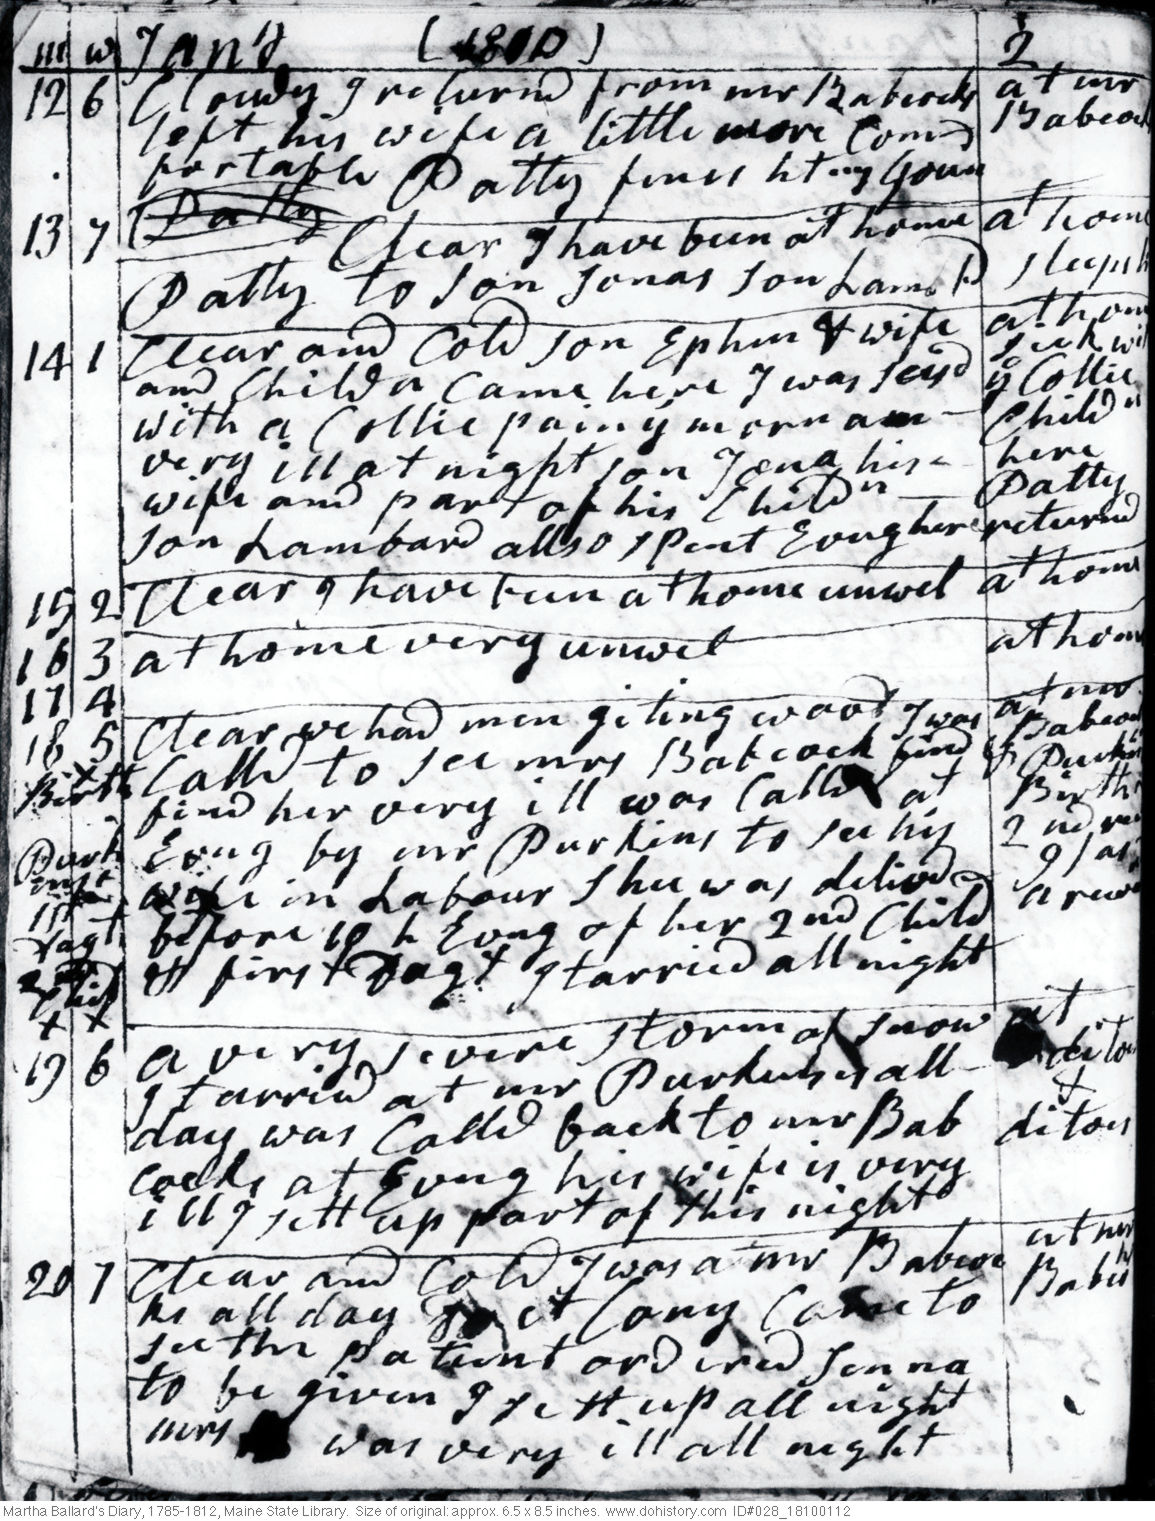 m w Jany [1810] 2
12 6 Cloudy I returnd from mr Babcocks at mr
left his wife a little more Com= Babcock
fortable Patty finisht my Goun
13 7 Patty Clear I have been at home at home
Patty to Son Jonas Son Lamb sleepy
14 1 Clear and Cold Son Ephm & wife at home
and Childn Came here I was seisd sick wt
with a Collic pain y morn am y Collic
very ill at night son Jona his Childn
wife and part of his Childn here
Son Lambard allso spent Evng here Patty returnd
15 2 Clear I have been at home unwel at home
16 3 at home very unwel at home
17 4
18 5 Clear we had men giting wood I was at mr
Birth Calld to see mrs Babcock find Babcock & Purkins
find her very ill was Calld at Birth
Purk Evng by mr Purkins to see his 2nd
wife in Labour shee was delivd
1st before 10 h Evng of her 2nd Child a
Dagt & first Dagt I tarried all night
2nd Child
X X
19 6 a very severe storm of snow at ditoes
I tarried at mr Purkinses all &
day was Calld back to mr Bab ditoes
Cocks at Evng his wife is very
ill I sett up part of this night
20 7 Clear and Cold I was at mr Babcoc at mr
ks all day Cony Came to Babcks
see the patient ordered senna
to be given I sett up all night
mrs was very ill all night
Martha Ballard's Diary, 1785-1812, Maine State Library. Size of original: approx. 6.5 x 8.5 inches. www.dohistory.com ID#028_18100112